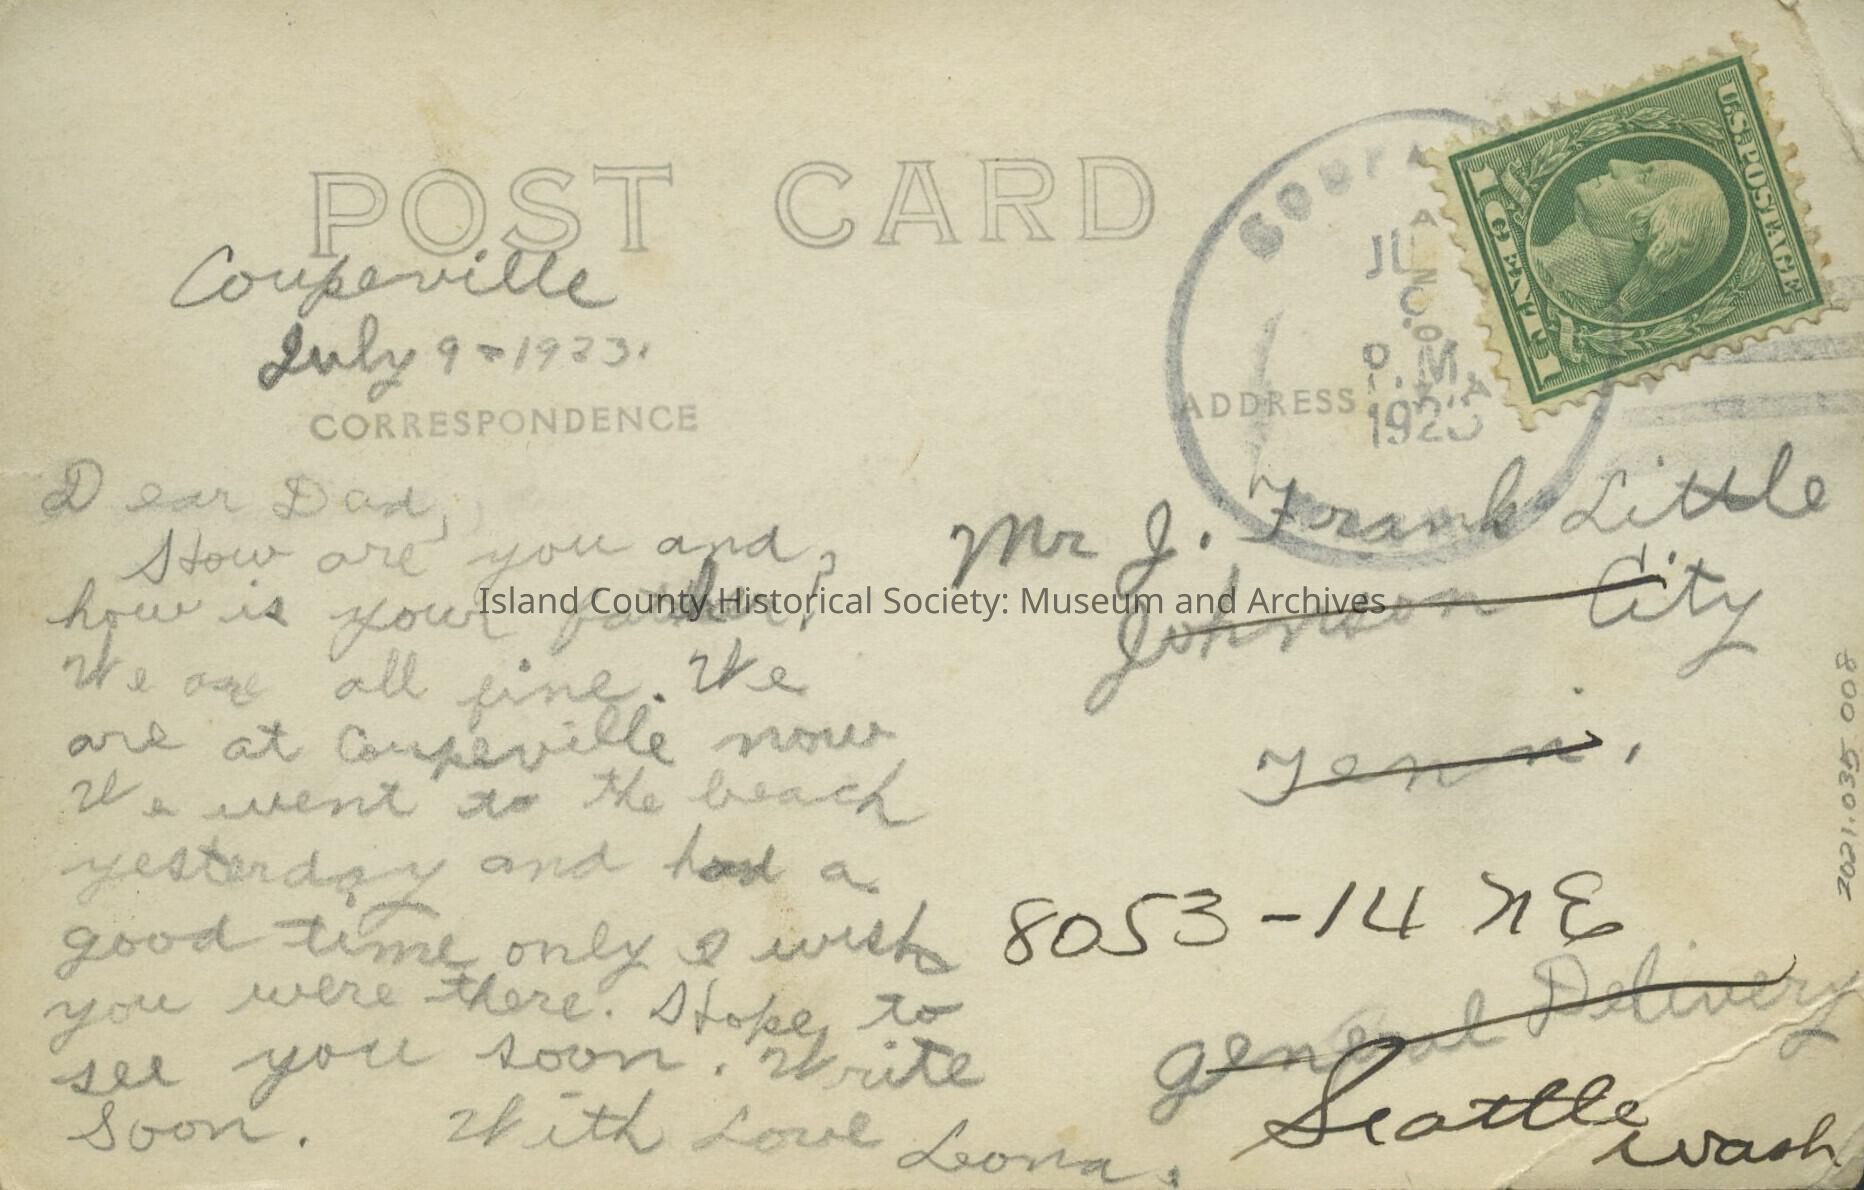 POST CARD
Coupeville
July 9-1923.
CORRESPONDENCE
Dear Dad,
How are you and,
how is your father?
We are all fine. We
are at Coupeville now
We went to the beach
yesterday and had a
good time only I wish
you were there. Hope to
see you soon. Write
Soon. With Love Leona.
JUL
P.M.
1923
U.S. POSTAGE
1 CENT 1
ADDRESS
Mr J. Frank Little
Johnson City
Tenn.
8053-14 NE
General Delivery
Seattle
Wash
2021.035.008
Island County Historical Society: Museum and Archives